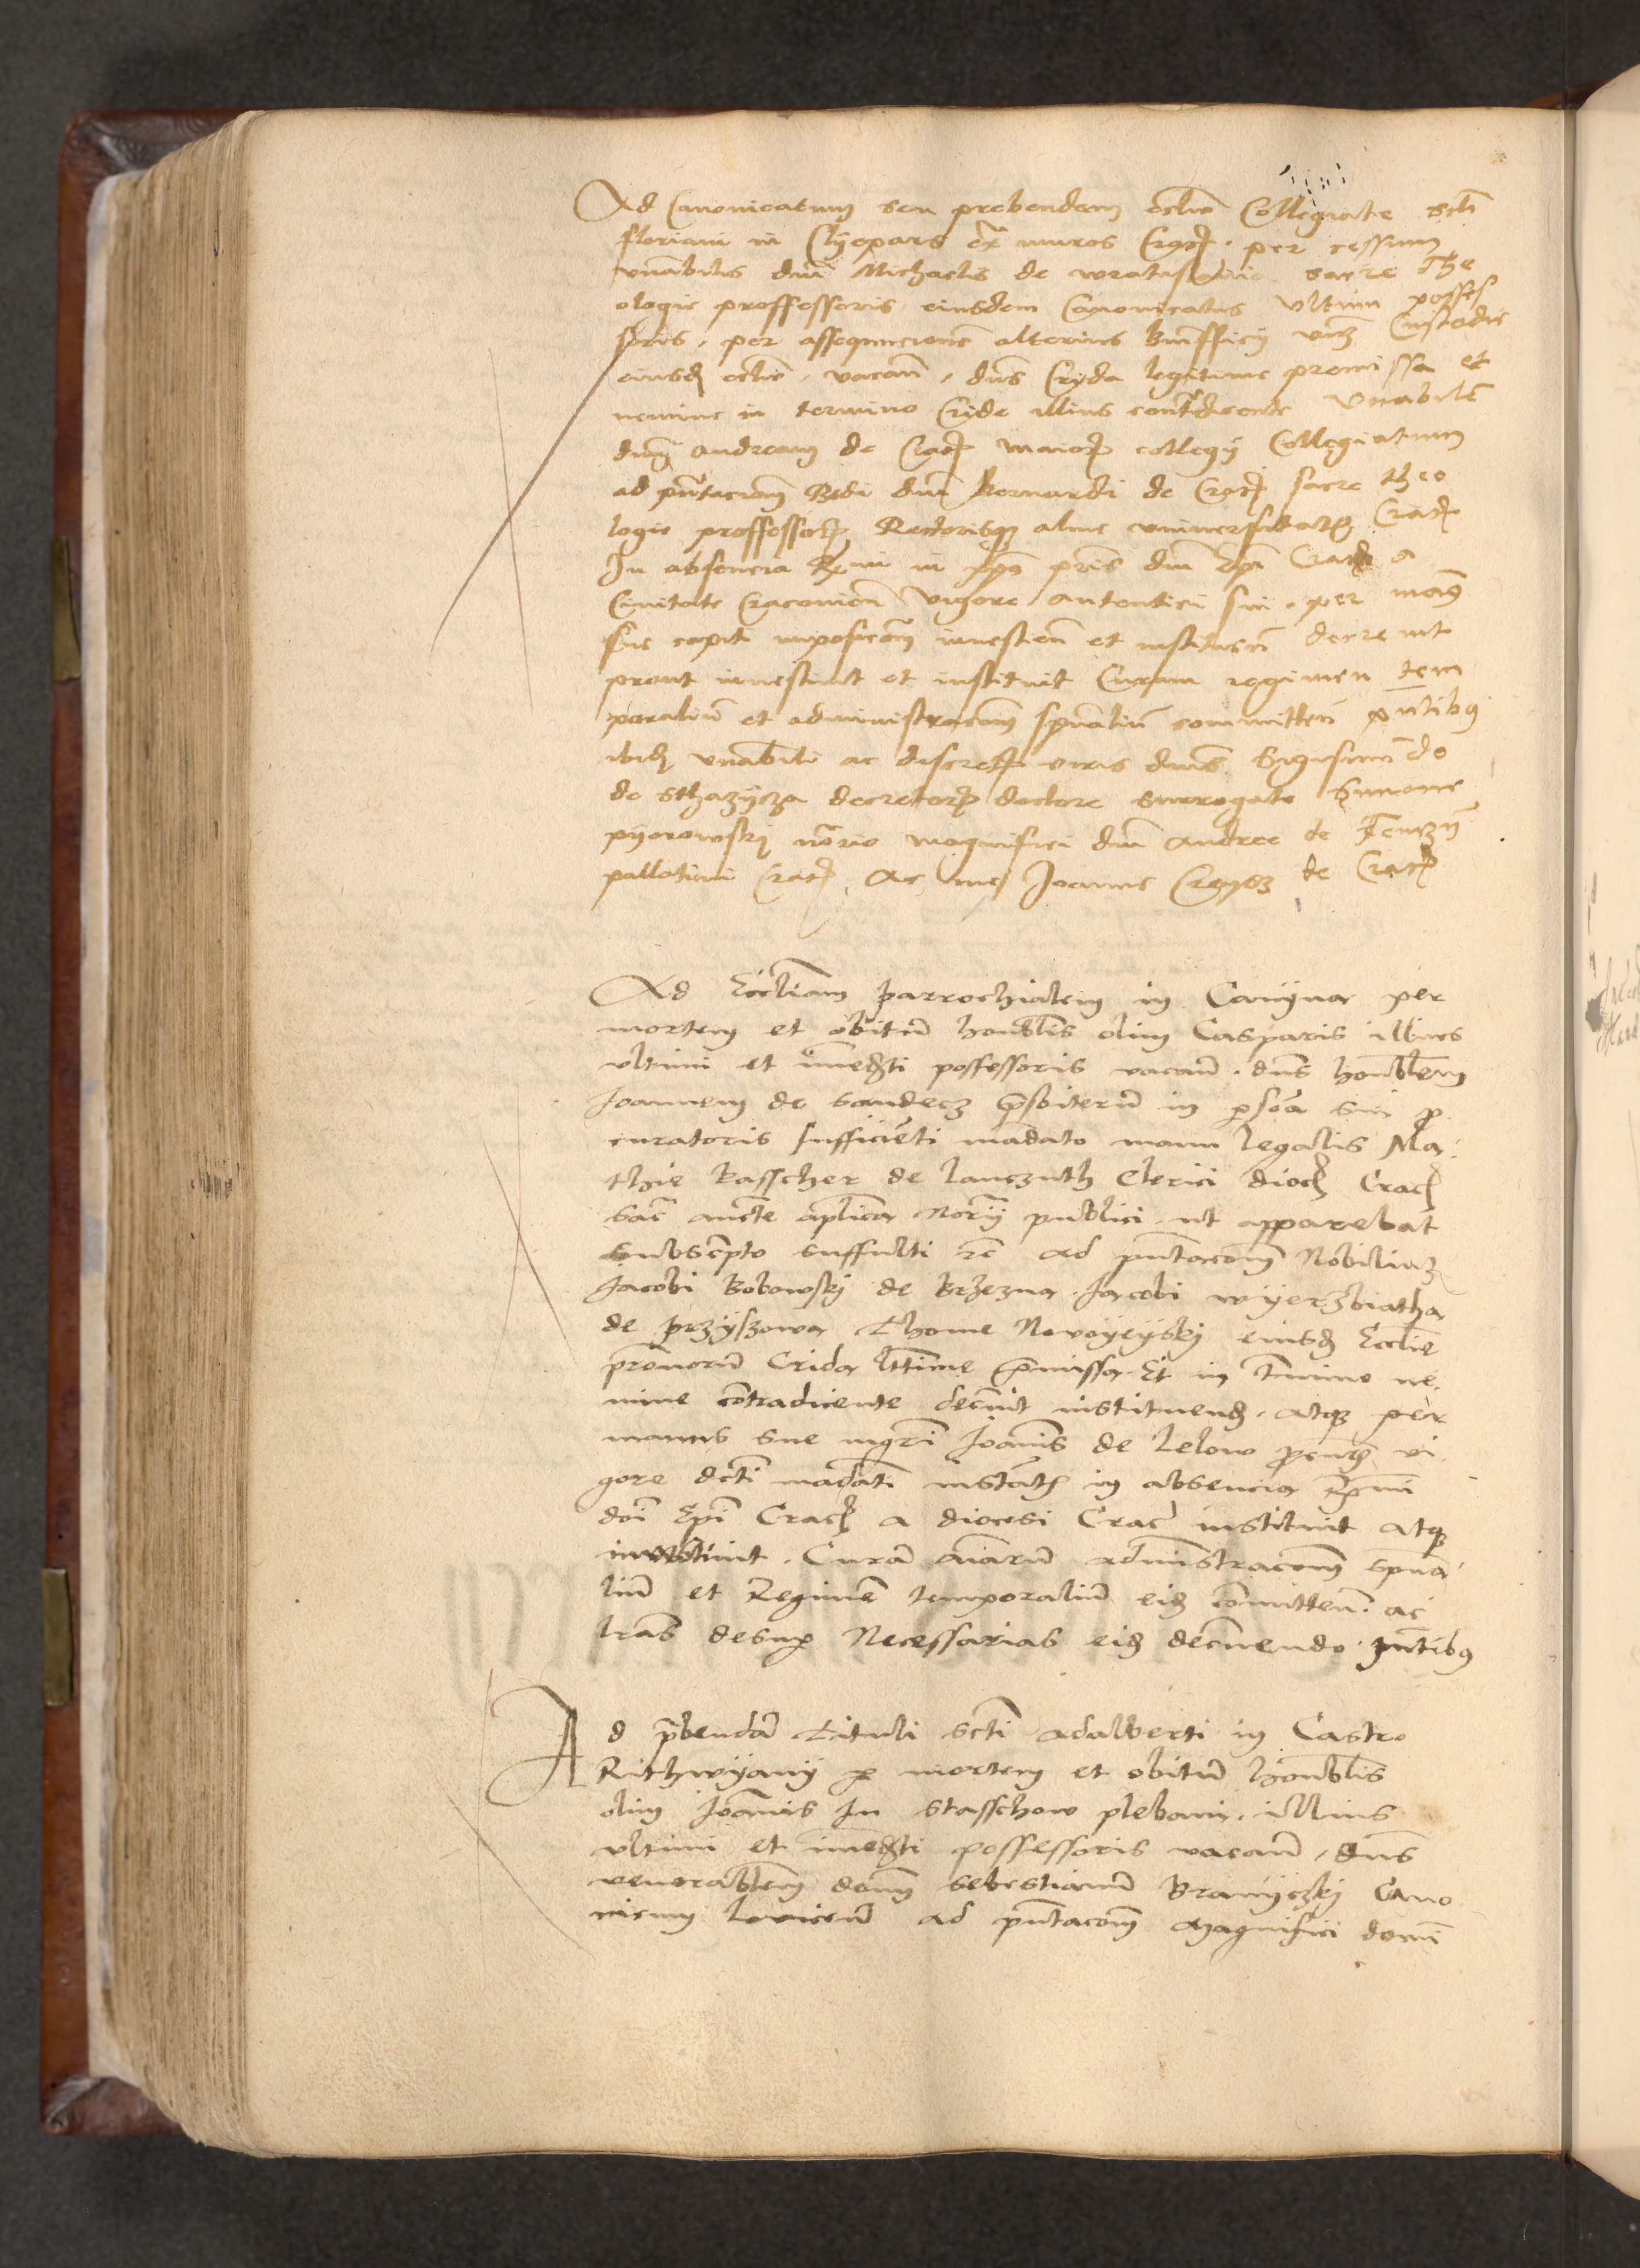 Ad Canonicatum seu prebendam ecclie Collegiate scti
floriani in Clyepars ex muros Crac per cessum
vnabilis dni Michaelis de wratislavia sacre The
ologie proffessoris eiusdem Canonicatus vltim posses
soris, per assequucionem alterius bnfficij vicz Custodie
eiusd ecclie, vacan, dns Cryda legitime premissa et
nemine in termino Cride illius contradicente vnabilem
dnm andream de Crac maior collegij Collegiatum
ad pntacionem Rdi dni Bernardi de Crac sacre theo
logie proffessor Rectorisque alme vniuersitatis Crac
In absencia Rmi in xpo pris dni Epi Crac a
Ciuitate Cracovien vigore autentici sui, per manus
sue capiti imposicom inuestien et instituen decreuit
prout inuestiuit et instituit Curam regimen tem
poralium et administracom spualium committen pntibus
ibid vnabili ac discret viris dnis Sigismundo
de sthazycza decretor doctore surrogato Simone
pyorowskij notario magnifici dni Andree de Tenczyn
pallatini Crac, Ac me Joanne de Crac
Ad Eccliam parrochialem in Camyna per
mortem et obitum honblis olim Casparis illius
vltimi et immedti possessoris vacan. dns honblem
Joannem de Sandecz prsbiterum in psona sui p
curatoris sufficienti madato manu legalis Ma
thie kasscher de lanczuth Clerici dioc Crac
sac aucte aplica Norij publici ut apparebat
subscripto suffulti rc ad pntacom Nobilium
Jacobi Bobowskij de Brzezna. Jacobi wyerzbiatha
de przyszowa Thome Novoyeyskij eiusd Ecclie
pronorum Crida lttime premissa. Et in Tmino ne
mine contradicente decreuit instituend. atque per
manus sue mgri Joannis de lelow
gore dcti madati instantis in absencia Rmi
dni Epi Crac a diocesi Crac instituit atque
inuestiuit. Curam aiarum administracom spua
lium et Regimen temporalium eid committen. ac
lras desup Necessarias eid decnendo. pntibus
Ad prebendam tituli scti adalberti in Castro
Rithwyany p mortem et obitum honblis
olim Joannis In Stasschow plebani. illius
vltimi et immedti possessoris vacan, dns
venerablem dnm sebestianum Branyczkij Cano
nicum lovicien ad pntacom magnifici domi